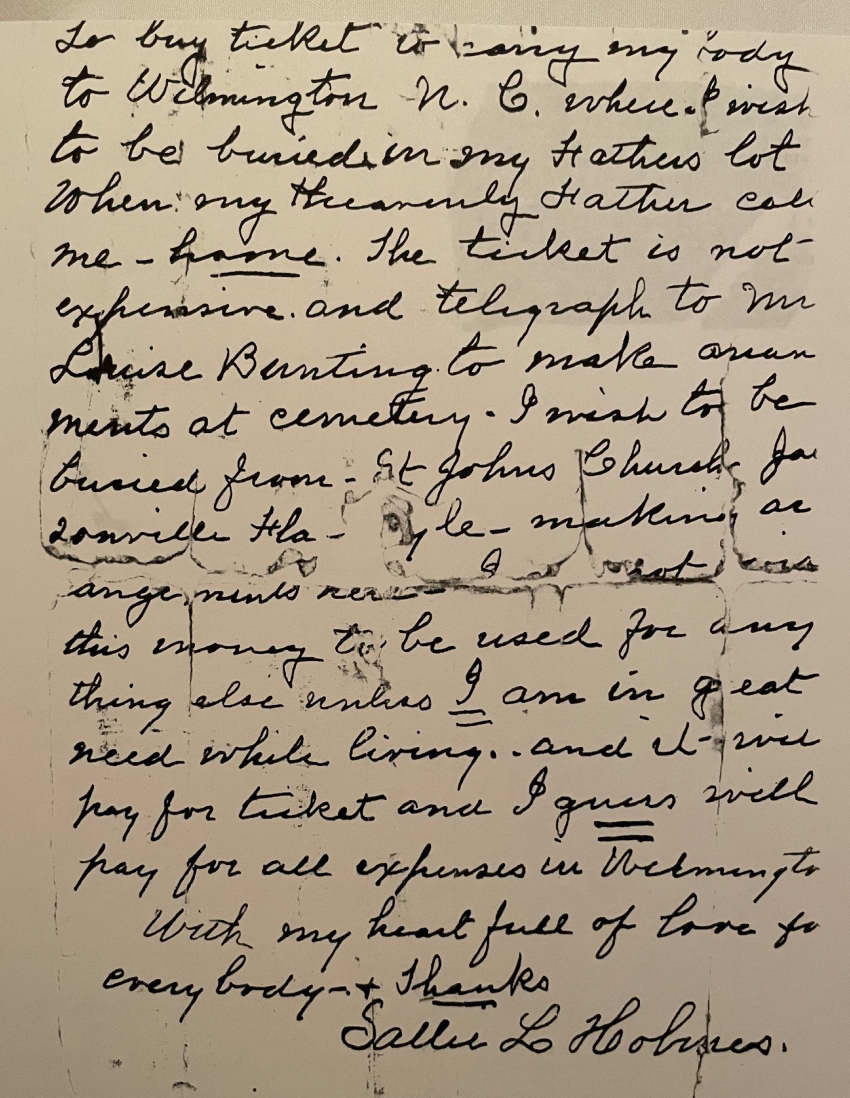 To buy ticket to carry my body
to Wilmington N. C. where I wish
to be buried in my Fathers lot
When my Heavenly Father
me - home. The ticket is not
expensive. and telegraph to
Louise Bunting to make
ments at cemetery - I wish to be
buried from - St Johns Church
Fla - making ar
angements here - I not
this money to be used for any
thing else unless I am in great
need while living.. and it will
pay for ticket and I guess will
pay for all expenses in Wilmingto
With my heart full of love to
everybody - + Thanks
Sallie L Holmes.